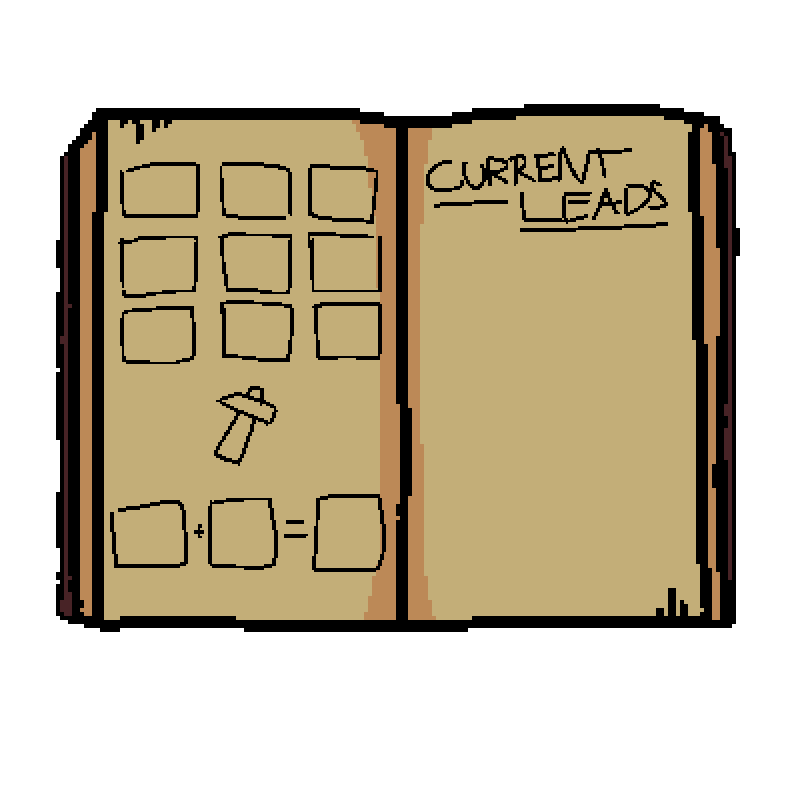 CURRENT
LEADS
+ =